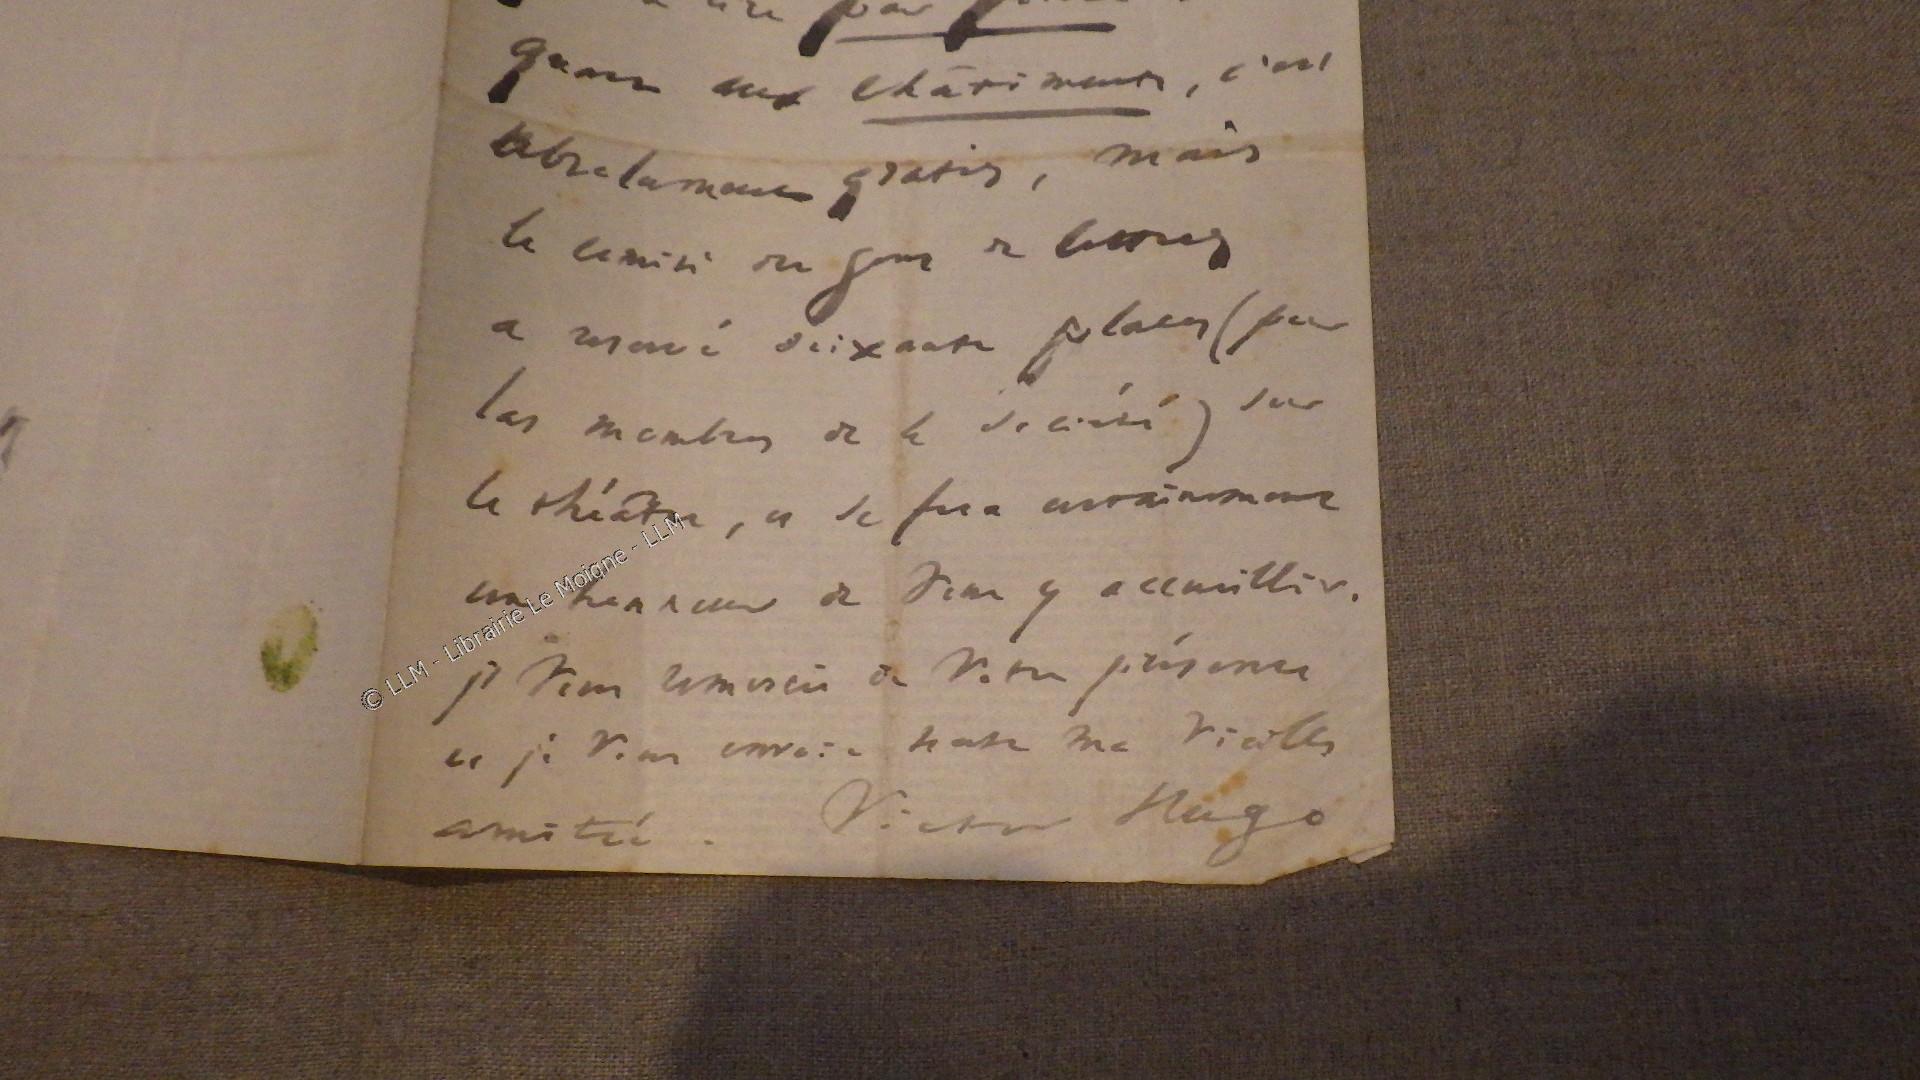 à lire par
quant aux Châtiments, c'est
absolument gratis, mais
le comité des gens de lettres
a réservé soixante places (pour
les membres de la Société) sur
le théâtre, et se fera certainement
un honneur de vous y accueillir.
je vous remercie de votre présence
et je vous envoie toute ma vieille
amitié. Victor Hugo
© LLM - Librairie Le Moigne - LLM